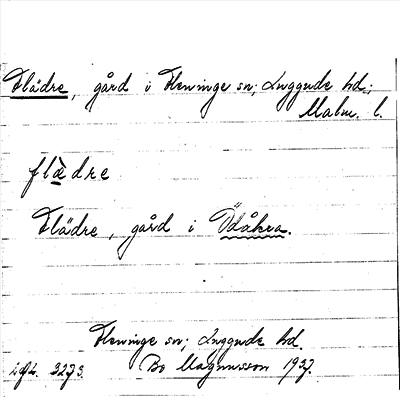 Flädre, gård i Fleninge sn; Luggude hd;
Malm. l.
flàdre
Flädre, gård i Ödåkra.
Fleninge sn; Luggude hd.
Bo Magnusson 1937.